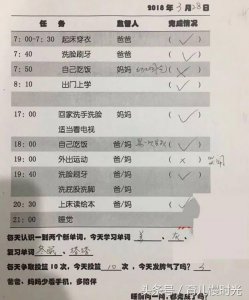 2018 年 3 月 28 日
任 务 监督人 完成情况
7:00-7:30 起床穿衣 爸爸 (✓)
7:40 洗脸刷牙 爸爸 (✓)
7:50 自己吃饭 妈妈 (✓)
8:10 出门上学 (✓)
17:00 回家洗手洗脸 妈妈 (✓)
适当看电视
18:00 自己吃饭 爸/妈 (✓)
19:00 外出运动 爸/妈 (×)
19:40 洗脸刷牙 爸/妈 (✓)
洗屁股洗脚
20:30 上床读绘本 爸/妈 (✓)
21:00 睡觉
每天认识一到两个新单词，今天学习单词
复习单词
每天争取投篮 10 次，今天投篮 10 次，今天发脾气了吗？
爸爸、妈妈少看手机，多陪伴
头条号 / 育儿慢时光